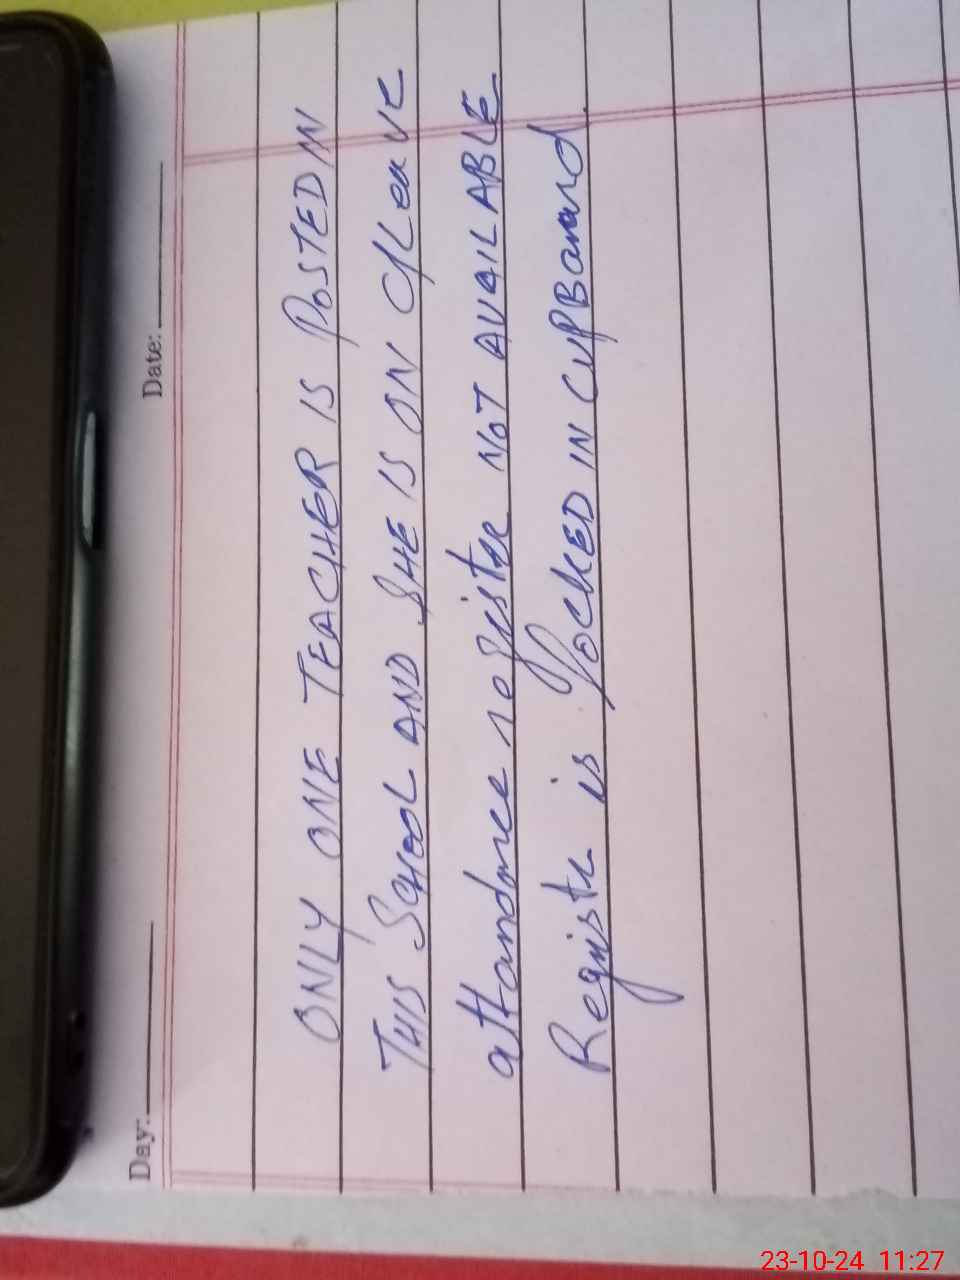 Day: Date:
ONLY ONE TEACHER IS POSTED IN
THIS SCHOOL AND SHE IS ON C/Leave
attandance register NOT AVAILABLE
Registr is locked IN CUPBoard.
23-10-24 11:27